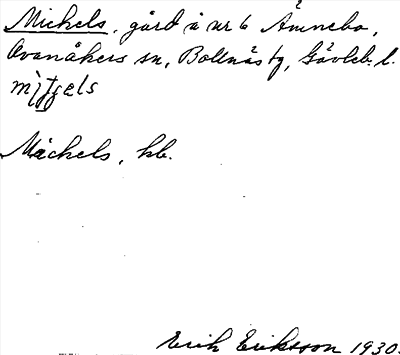 Michels, gård å nr 6 Åmnebo,
Ovanåkers sn, Bollnäs tg, Gävleb. l.
Michels, hb.
Erik Eriksson 1930.